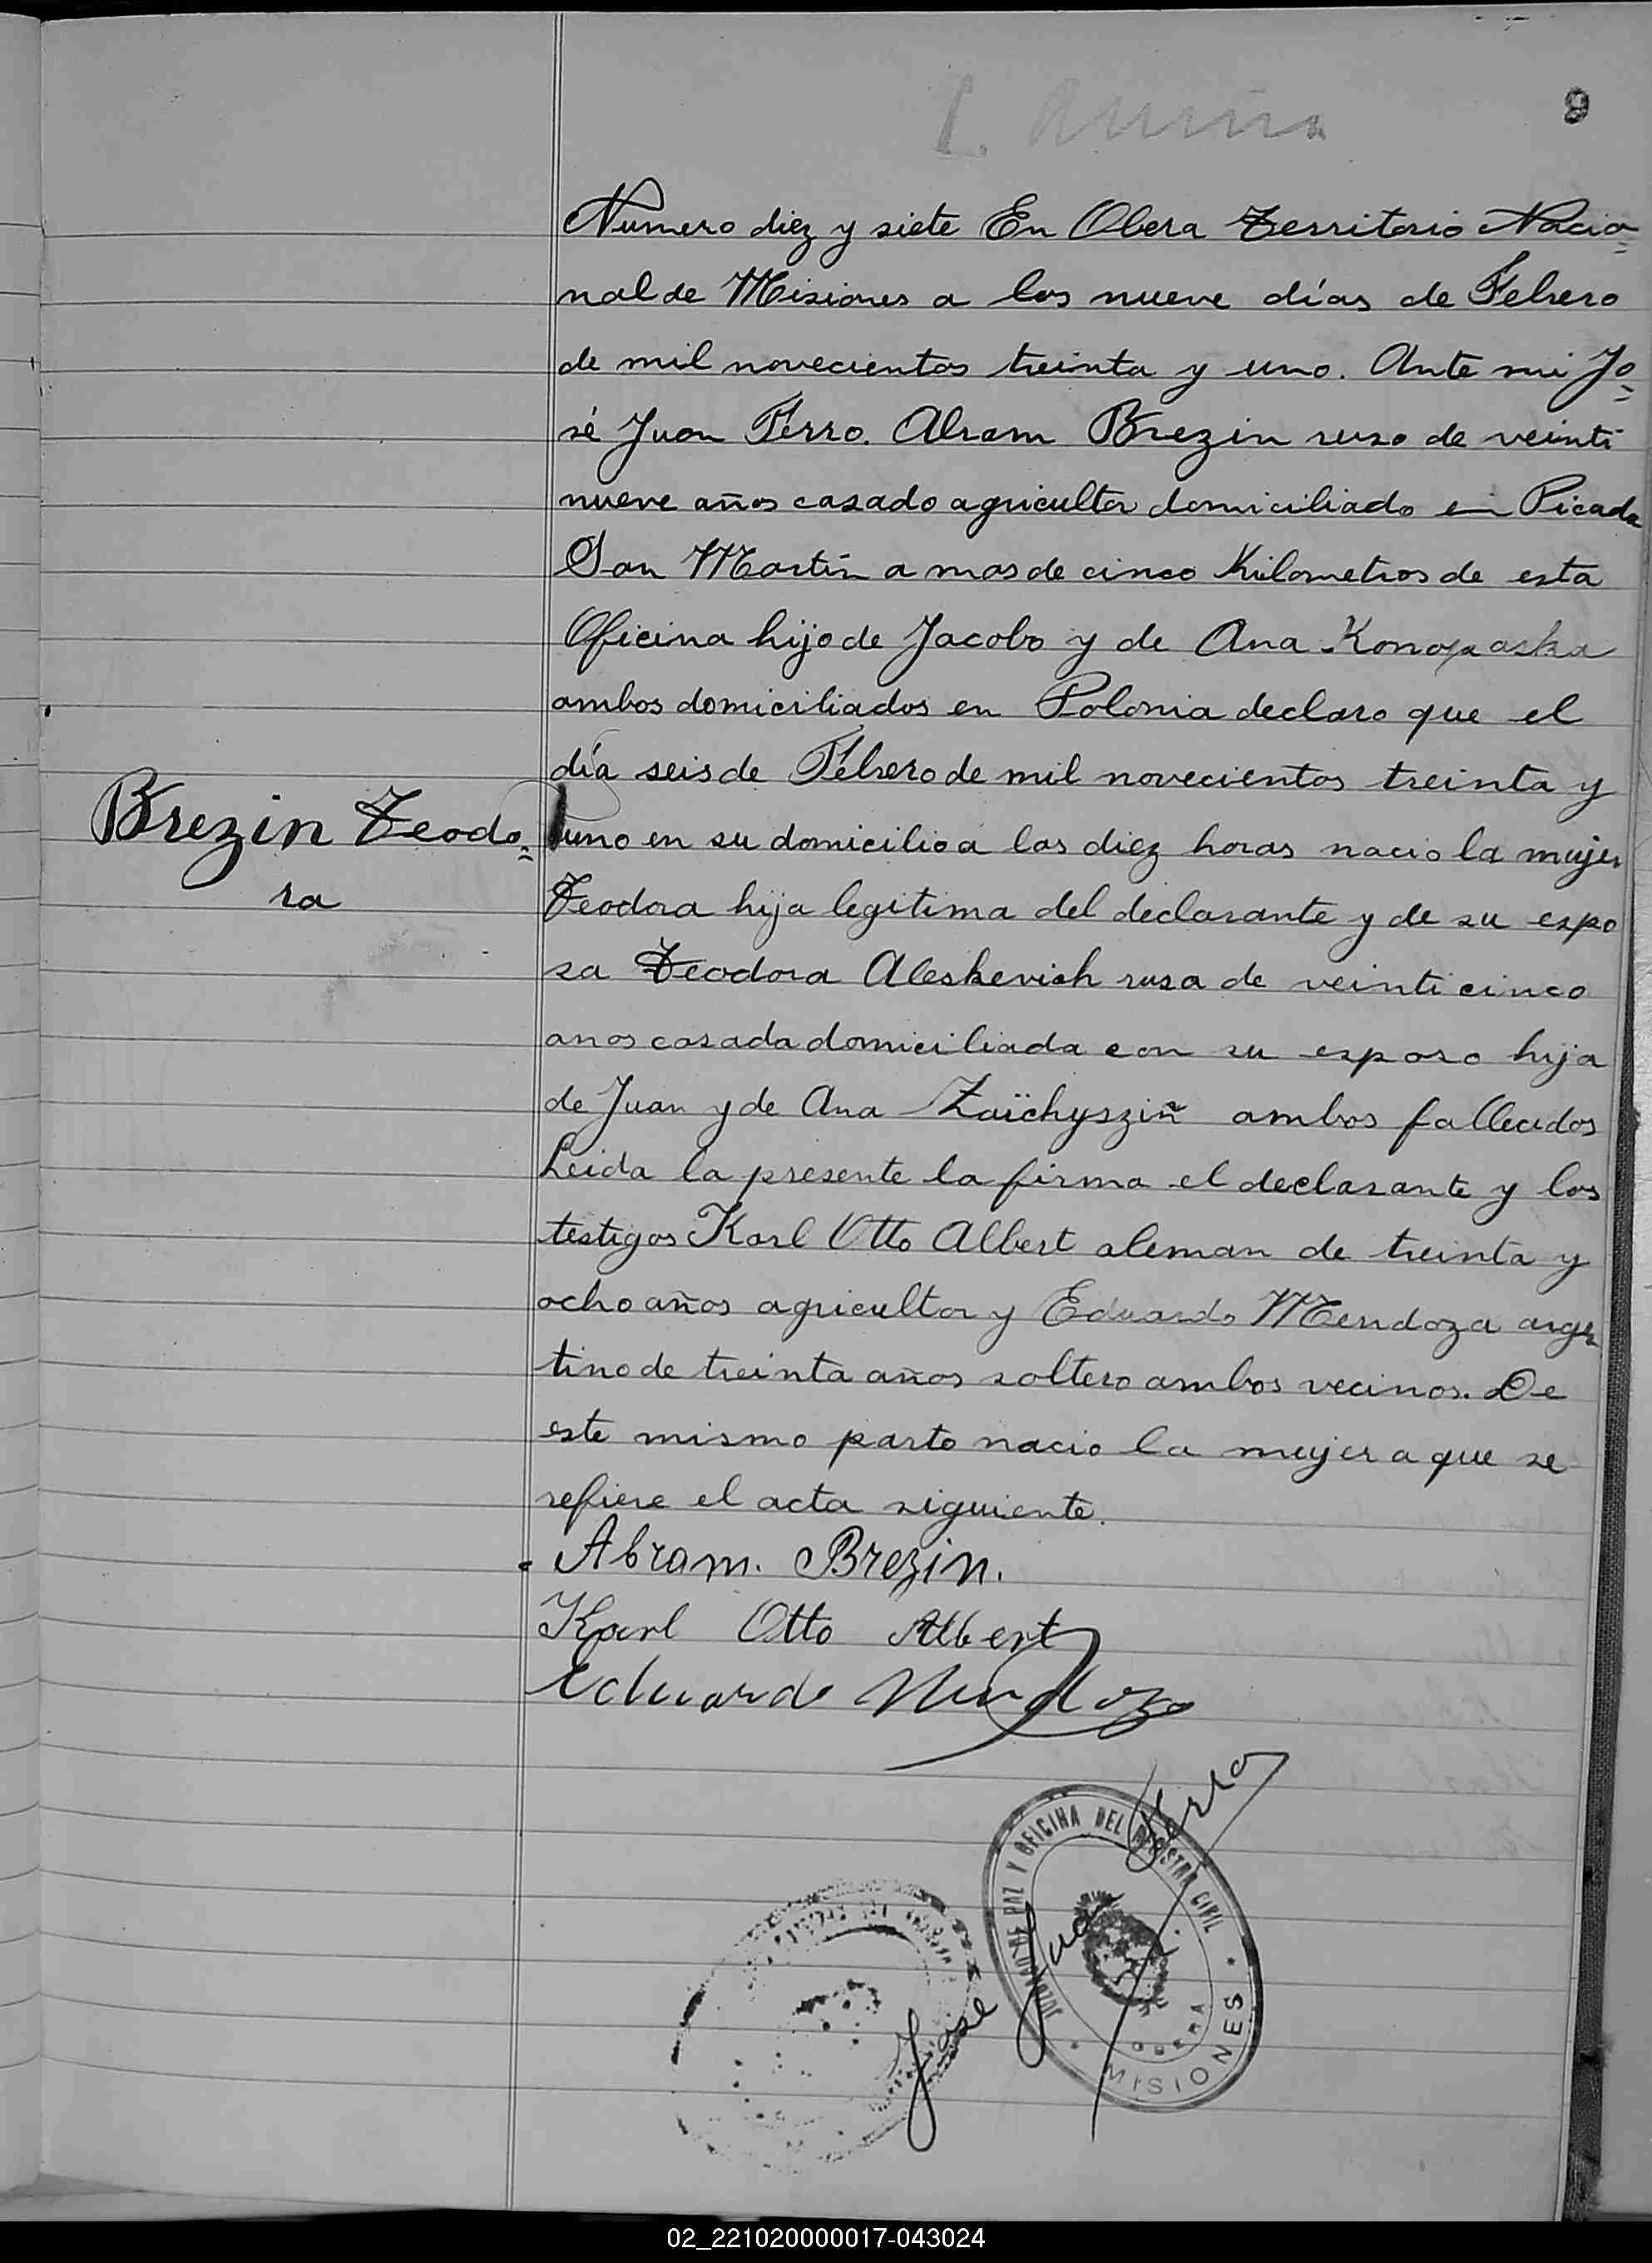 9
Numero diez y siete En Obera Territorio Nacio=
nal de Misiones a los nueve días de Febrero
de mil novecientos treinta y uno. Ante mi Jo=
sé Juan Ferro. Abram Brezin ruso de veinti
nueve años casado agricultor domiciliado en Picada
San Martín a mas de cinco Kilometros de esta
Oficina hijo de Jacobo y de Ana Konopaska
ambos domiciliados en Polonia declaro que el
día seis de Febrero de mil novecientos treinta y
Brezin Teodo=
ra
uno en su domicilio a las diez horas nacio la mujer
Teodora hija legitima del declarante y de su espo
sa Teodora Aleskevich rusa de veinti cinco
anos casada domiciliada con su esposo hija
de Juan y de Ana Zaïchysziñ ambos fallecidos
Leida la presente la firma el declarante y los
testigos Karl Otto Albert aleman de treinta y
ocho años agricultor y Eduardo Mendoza argen
tino de treinta años soltero ambos vecinos. De
este mismo parto nacio la mujer a que se
refiere el acta siguiente.
Abram. Brezin.
Karl Otto Albert
Eduardo Mendoza
José Juan Ferro
JUZGADO DE PAZ Y OFICINA DEL REGISTRO CIVIL
OBERA
* MISIONES *
02_221020000017-043024